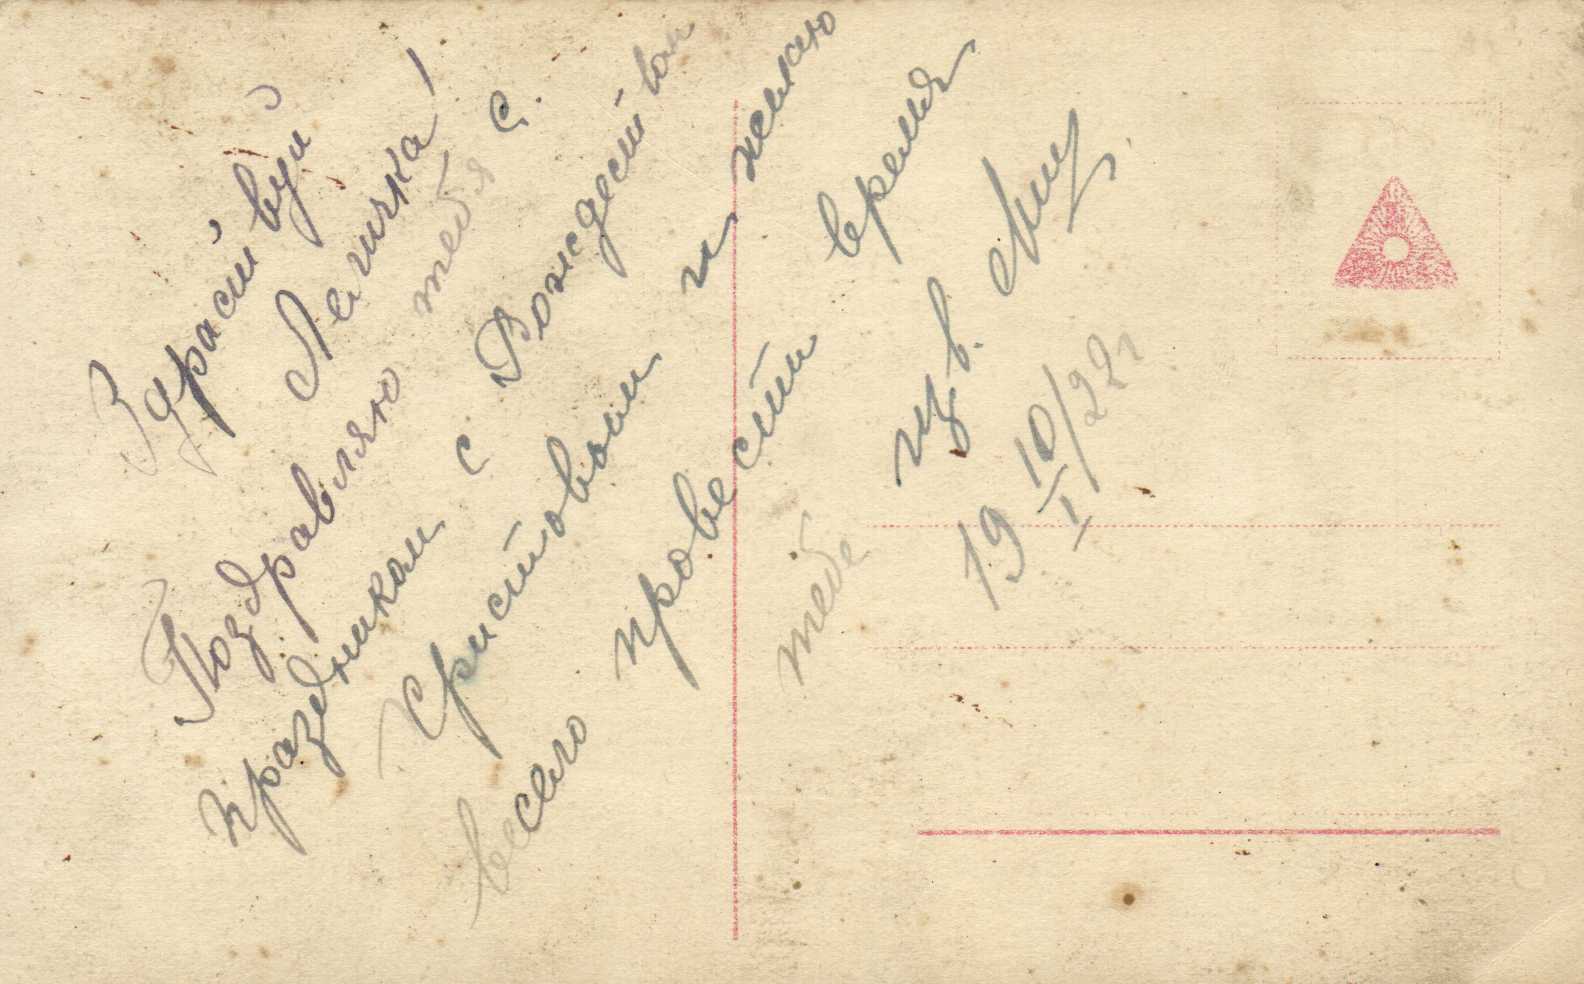 Здраствуй
Леличка!
Поздравляю тебя с
праздником с Рождеством
Христовым и желаю
весело провести время
тебе
19 10/I/22г